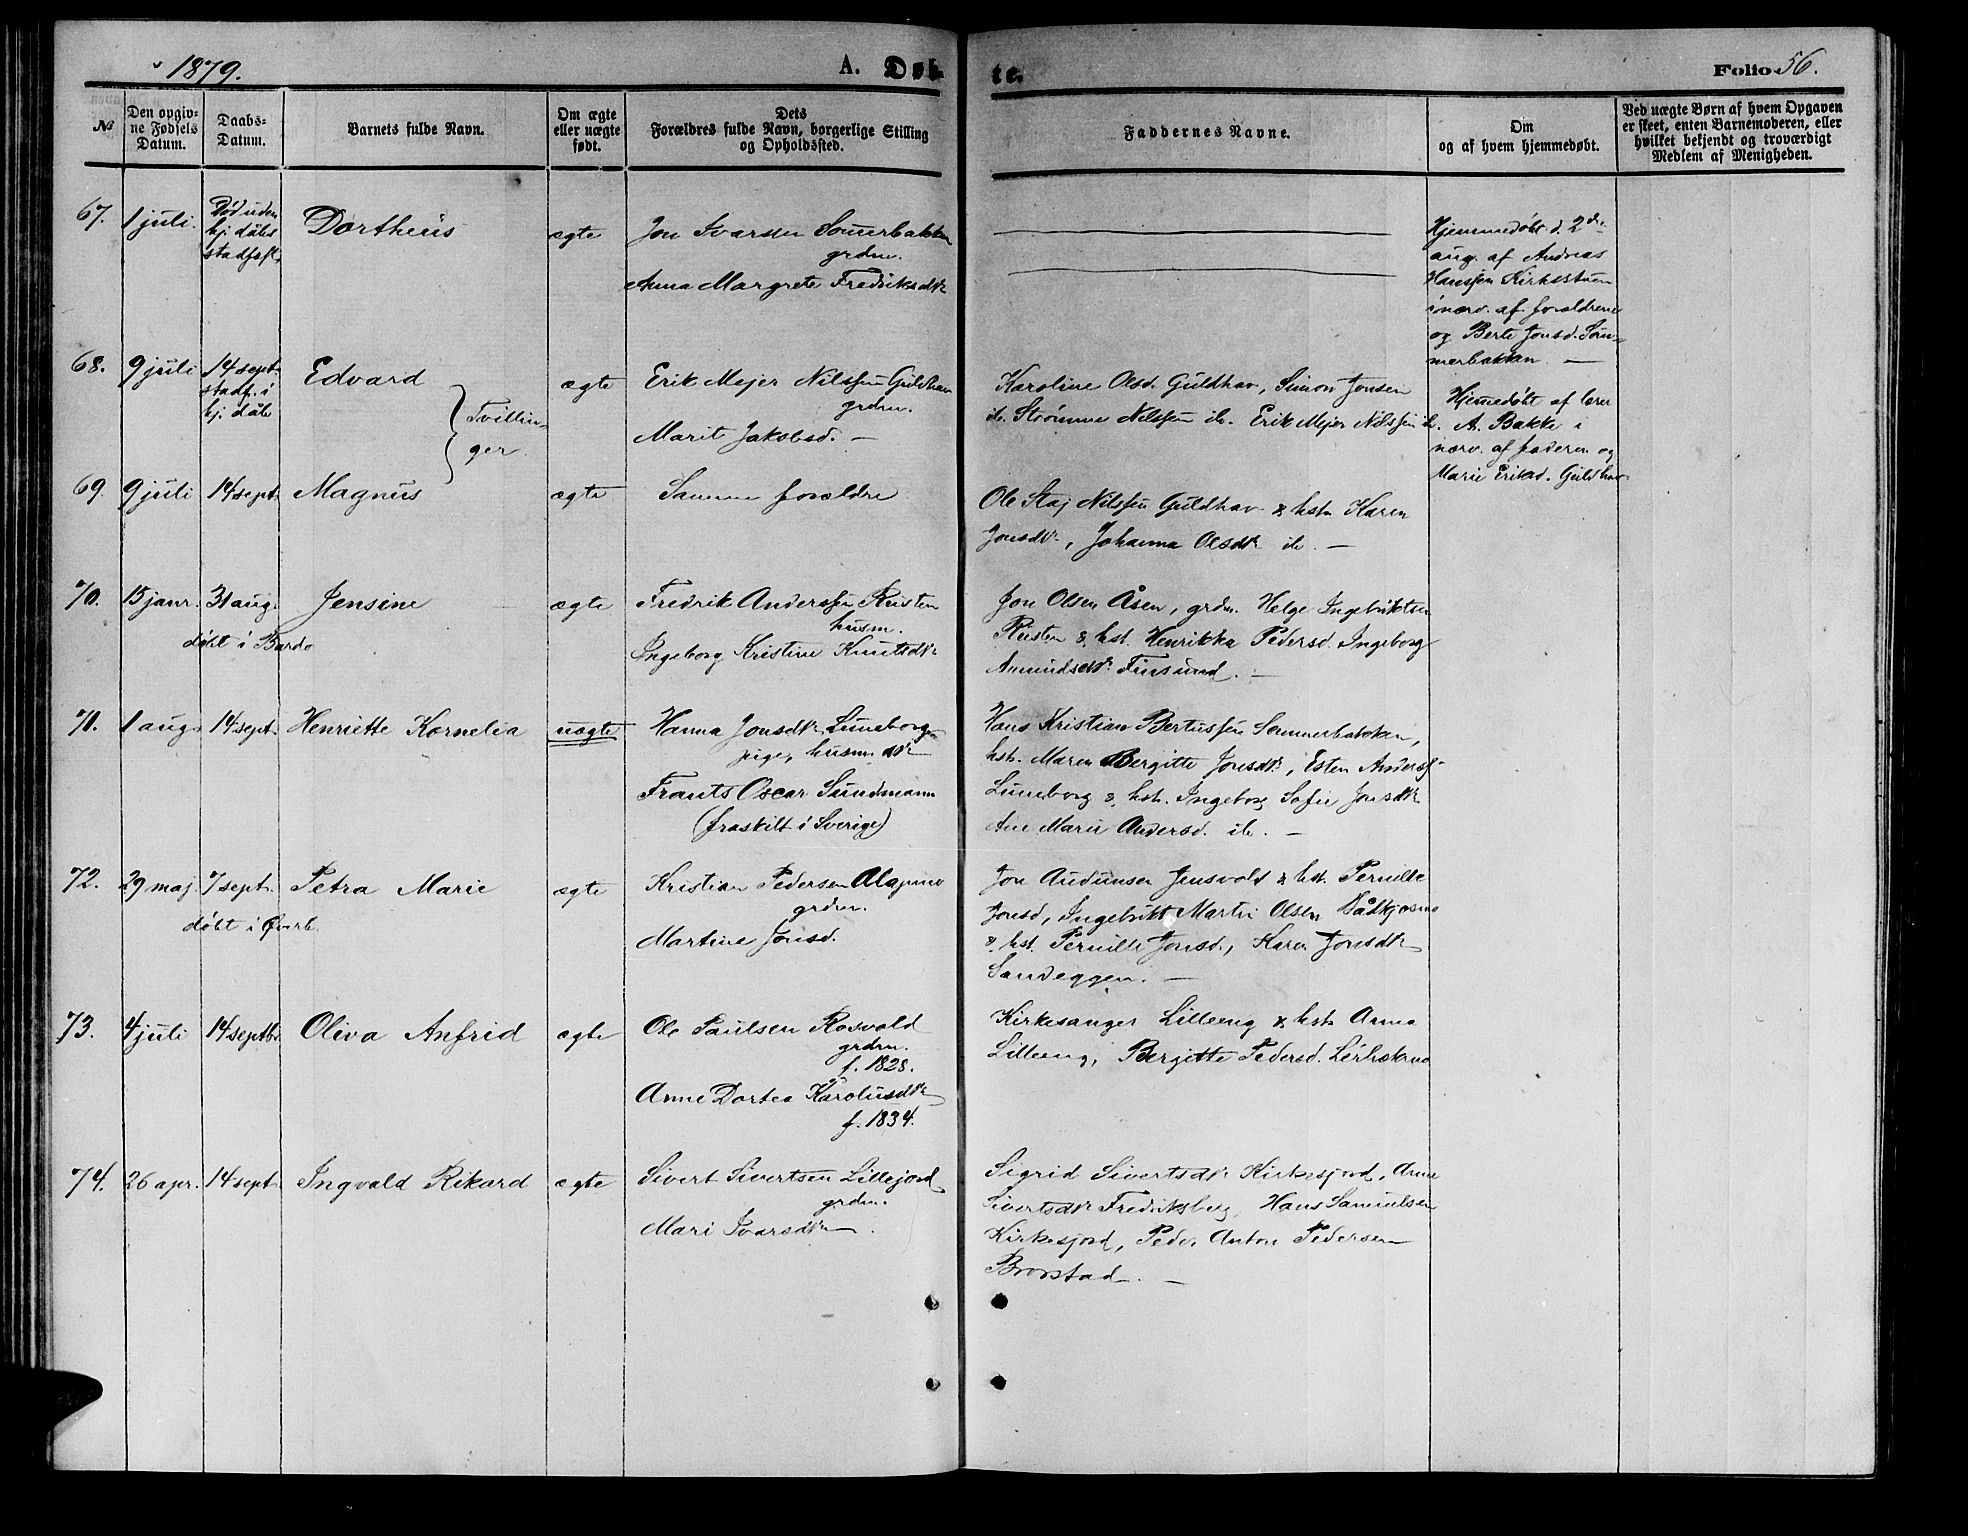 1879. A. Døb-
te. Folio 56.
№
Den opgiv-
ne Fødsels
Datum.
Daabs-
Datum.
Barnets fulde Navn.
Om ægte
eller uægte
født.
Dets
Forældres fulde Navn, borgerlige Stilling
og Opholdssted.
Faddernes Navne.
Om
og af hvem hjemmedøbt.
Ved uægte Børn af hvem Opgaven
er skeet, enten Barnemoderen, eller
hvilket bekjendt og troværdigt
Medlem af Menigheden.
67.
1 juli.
Død uden
hj. dåbs
stadfæst.
Dortheus
ægte
Jon Ivarsen Sommerbakken
grdm.
Anna Margrete Fredriksdtr
Hjemmedøbt d. 2de
aug. af Andreas
Hanssen Kirkestuen
i nærv. af forældrene
og Berte Jonsd. Som-
merbakken —
68.
9 juli
14 sept.
stadf. i
hj. dåb
Edvard
Tvillin-
ger.
ægte
Erik Mejer Nilssen Guldhav
grdm.
Marit Jakobsd. —
Karoline Olsd. Guldhav, Simon Jonsen
ib. Strømme Nilssen ib. Erik Mejer Nilssen ib.
Hjemmedøbt af lærer
A. Bakke i
nærv. af faderen og
Marie Eriksd. Guldhav
69.
9 juli
14 sept.
Magnus
ægte
Samme forældre
Ole Staj Nilssen Guldhav & hstr Karen
Jonsdtr, Johanna Olsdtr ib. —
70.
15 janr.
31 aug.
døbt i Bardo
Jensine
ægte
Fredrik Anderssen Rusten
husm.
Ingeborg Kristine Knutsdtr
Jon Olsen Åsen, grdm. Helge Ingebriktsen
Rusten & hst. Henrikka Pedersd. Ingeborg
Amundsdtr Finsund. —
71.
1 aug.
14 sept.
Henriette Kornelia
uægte
Hanna Jonsdtr Luneborg
pige, husm. dtr
Frants Oscar Sundmann
(fraskilt i Sverige)
Hans Kristian Bertussen Sommerbakken,
hstr. Maren Bergitte Jonsdtr, Esten Anderss.
Luneborg & hstr. Ingeborg Sofie Jonsdtr
Ane Marie Andersd. ib. —
72.
29 maj
7 sept.
døbt i Øverb.
Petra Marie
ægte
Kristian Pedersen Alapmo
grdm.
Martine Jonsd.
Jon Audunsen Jensvold & hst. Pernille
Jonsd, Ingebrikt Martin Olsen
& hst. Pernille Jonsd., Karen Jonsdtr
Sandeggen. —
73.
4 juli
14 septbr
Oliva Anfrid
ægte
Ole Paulsen Rosvold
grdm.
f. 1828.
Anne Dortea Karolusdtr
f. 1834.
Kirkesanger Lilleeng & hstr Anna
Lilleeng, Bergitte Pedersd.
74.
26 apr.
14 sept.
Ingvald Rikard
ægte
Sivert Sivertsen Lillejord
grdm.
Mari Ivarsdtr.
Sigrid Sivertsdtr Kirkesjord, Anne
Sivertsdtr Fredriksberg, Hans Samuelsen
Kirkesjord, Peder Anton Pedersen
Brorstad. —